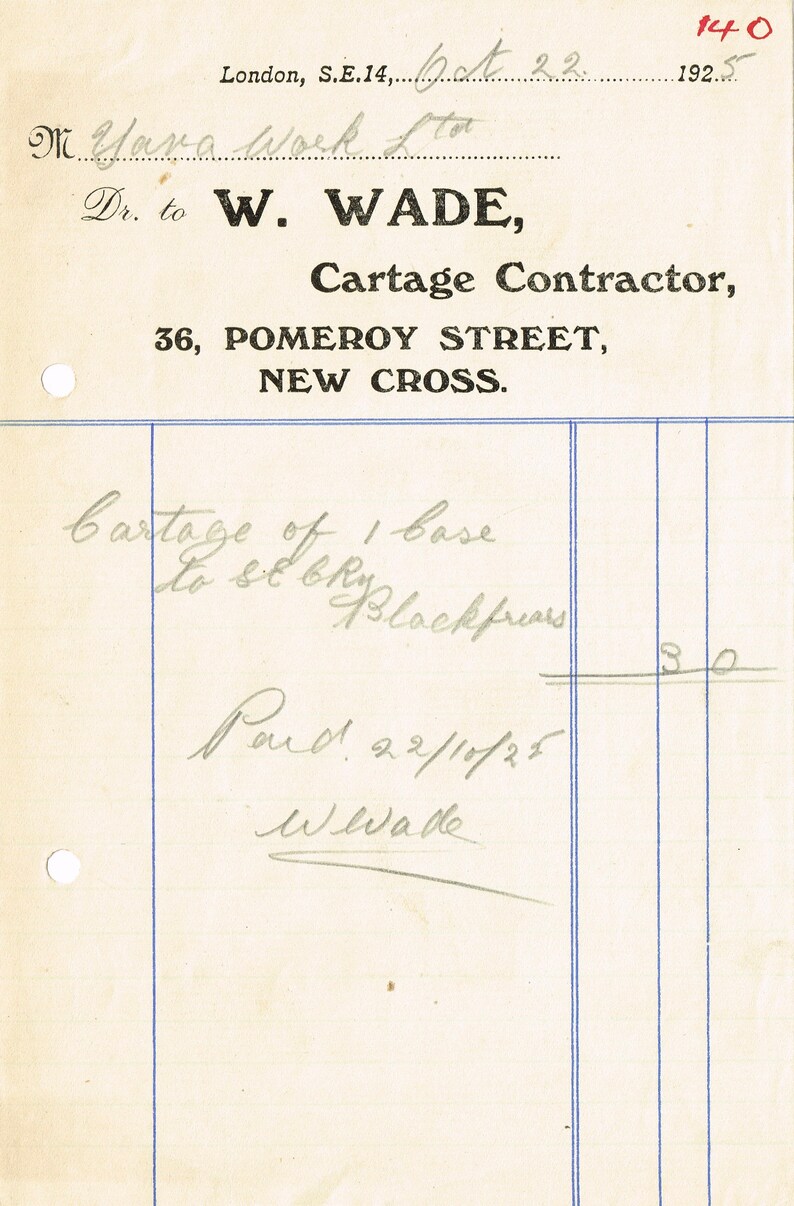 140
London, S.E.14, Oct 22 1925
M Yava Work Ltd
Dr. to W. WADE,
Cartage Contractor,
36, POMEROY STREET,
NEW CROSS.
Cartage of 1 Case
to SE CRy
Blackfriars
3 0
Paid 22/10/25
W Wade